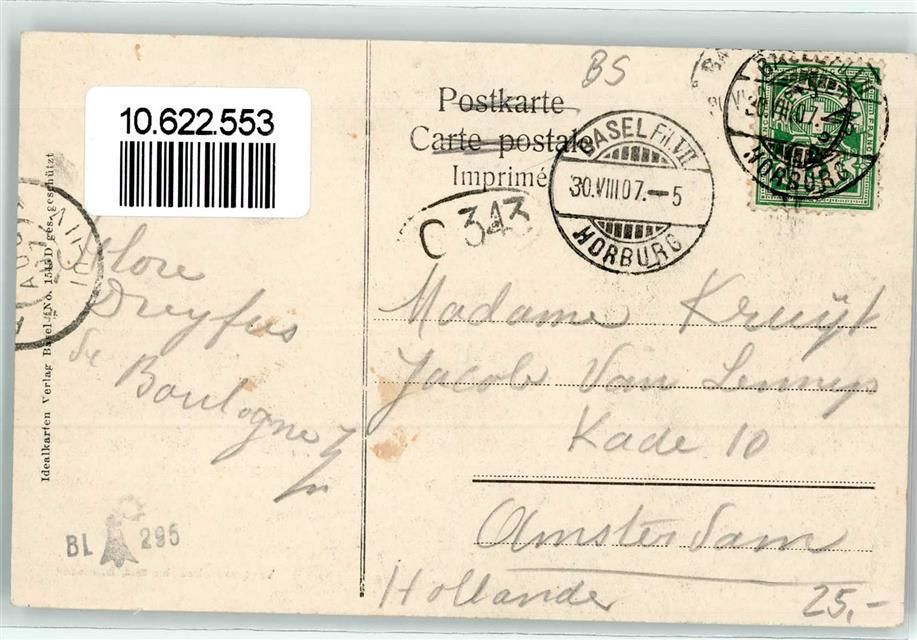 BS
10.622.553
Postkarte
Carte postale
Imprimé
BASEL Fil. VII
30.VIII07.-5
HORBURG
30.VIII07.-5
HORBURG
C 343
Idealkarten Verlag Basel No. 1545D ges. geschützt
Flore
Dreyfus
de
Boulogne
Madame Kruÿt
Jacob Van Lennep
Kade 10
Amsterdam
Hollander
BL 295
25,-